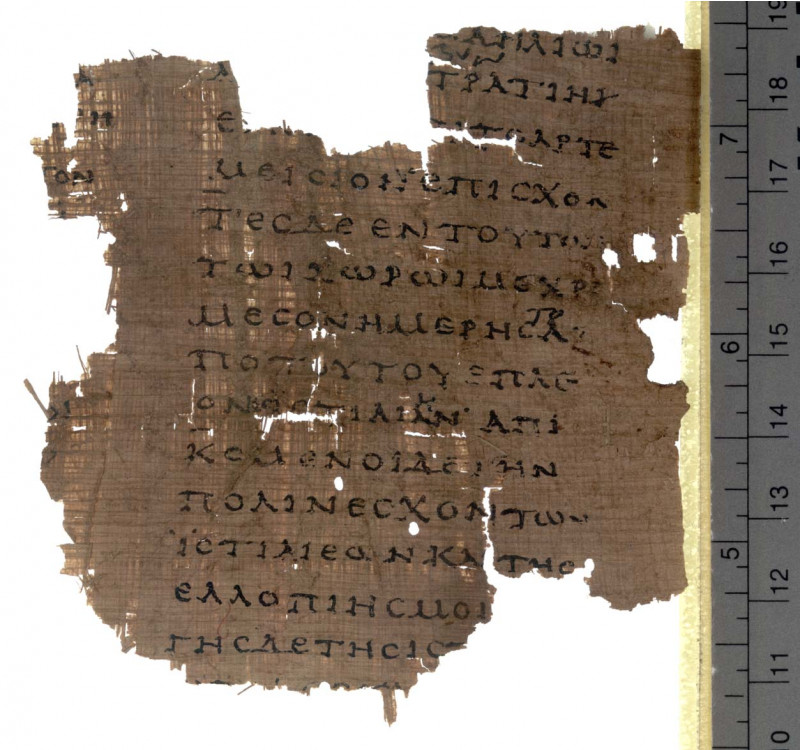 ΑΗΛΙΩΙ
ΤΡΑΤΙΗΙ
ΤΟΑΡΤΕ
ΜΕΙϹΙΟΝ ΕΠΙϹΧΟΝ
ΤΕϹΔΕ ΕΝ ΤΟΥΤΩΙ
ΤΩΙΧΩΡΩΙΜΕΧΡ
ΜΕϹΟΝΗΜΕΡΗϹ
ΠΟΤΟΥΤΟΥ ΕΠΛΕ
ΟΝΕϹΤΙΑΙΗΝ ΑΠΙ
ΚΟΜΕΝΟΙΔΕΤΗΝ
ΠΟΛΙΝΕϹΧΟΝΤΩΝ
ΙϹΤΙΑΙΕΩΝΚΑΙΤΗϹ
ΕΛΛΟΠΙΗϹΜΟΙ
ΓΗϹΔΕΤΗϹΙϹΤ